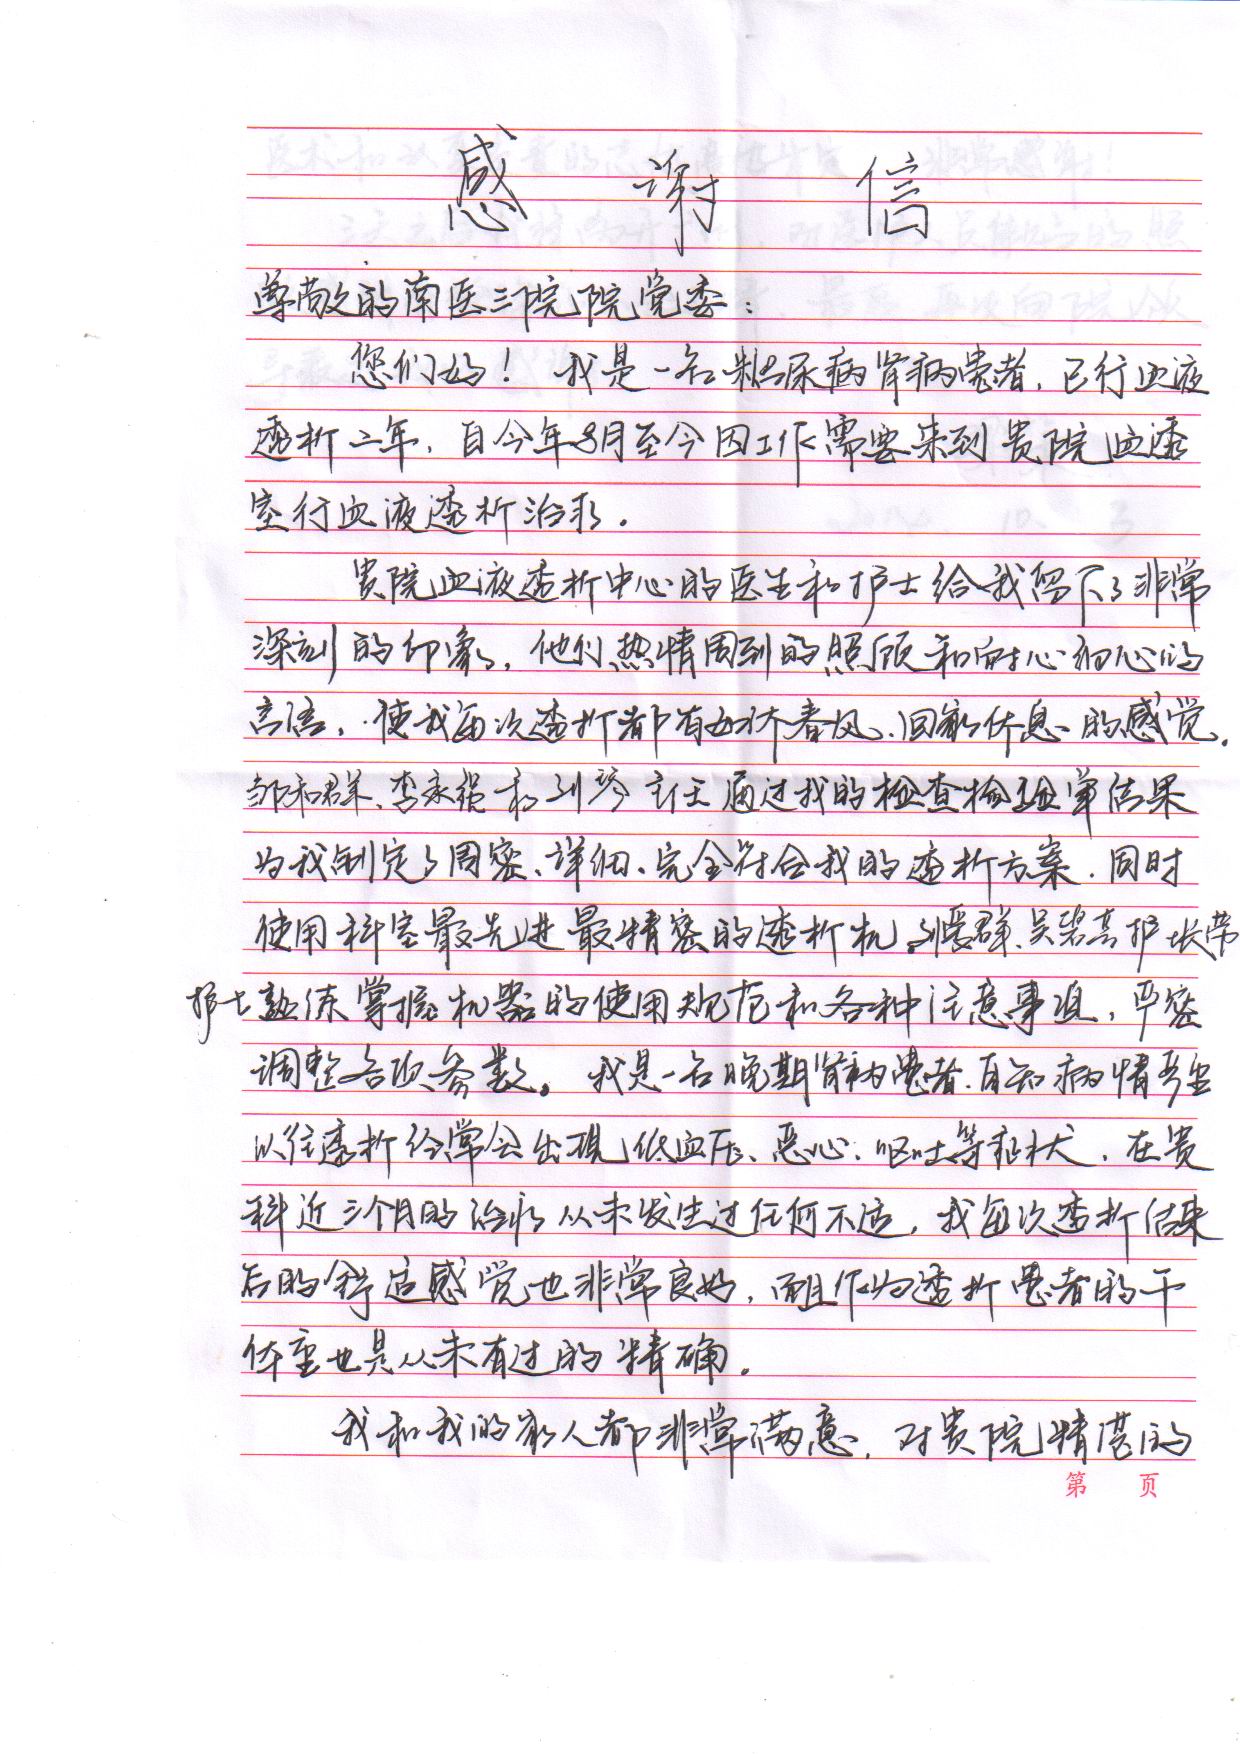 感谢信
尊敬的南医三院院党委：
您们好！我是一名糖尿病肾病患者，已行血液
透析二年，自今年8月至今因工作需要来到贵院血透
室行血液透析治疗。
贵院血液透析中心的医生和护士给我留下了非常
深刻的印象，他们热情周到的照顾和耐心细心的
言语，使我每次透析都有如沐春风、回家休息的感觉。
邹和群、李永强和刘琴主任通过我的检查检验单结果
为我制定了周密、详细、完全符合我的透析方案，同时
使用科室最先进最精密的透析机。刘爱群、吴碧 护长带
护士熟练掌握机器的使用规范和各种注意事项，严密
调整各项参数。我是一名晚期肾病患者，自知病情严重
以往透析经常会出现低血压、恶心、呕吐等症状，在贵
科近三个月的治疗从未发生过任何不适，我每次透析结束
后的舒适感觉也非常良好，而且作为透析患者的干
体重也是从未有过的精确。
我和我的家人都非常满意，对贵院精湛的
第 页